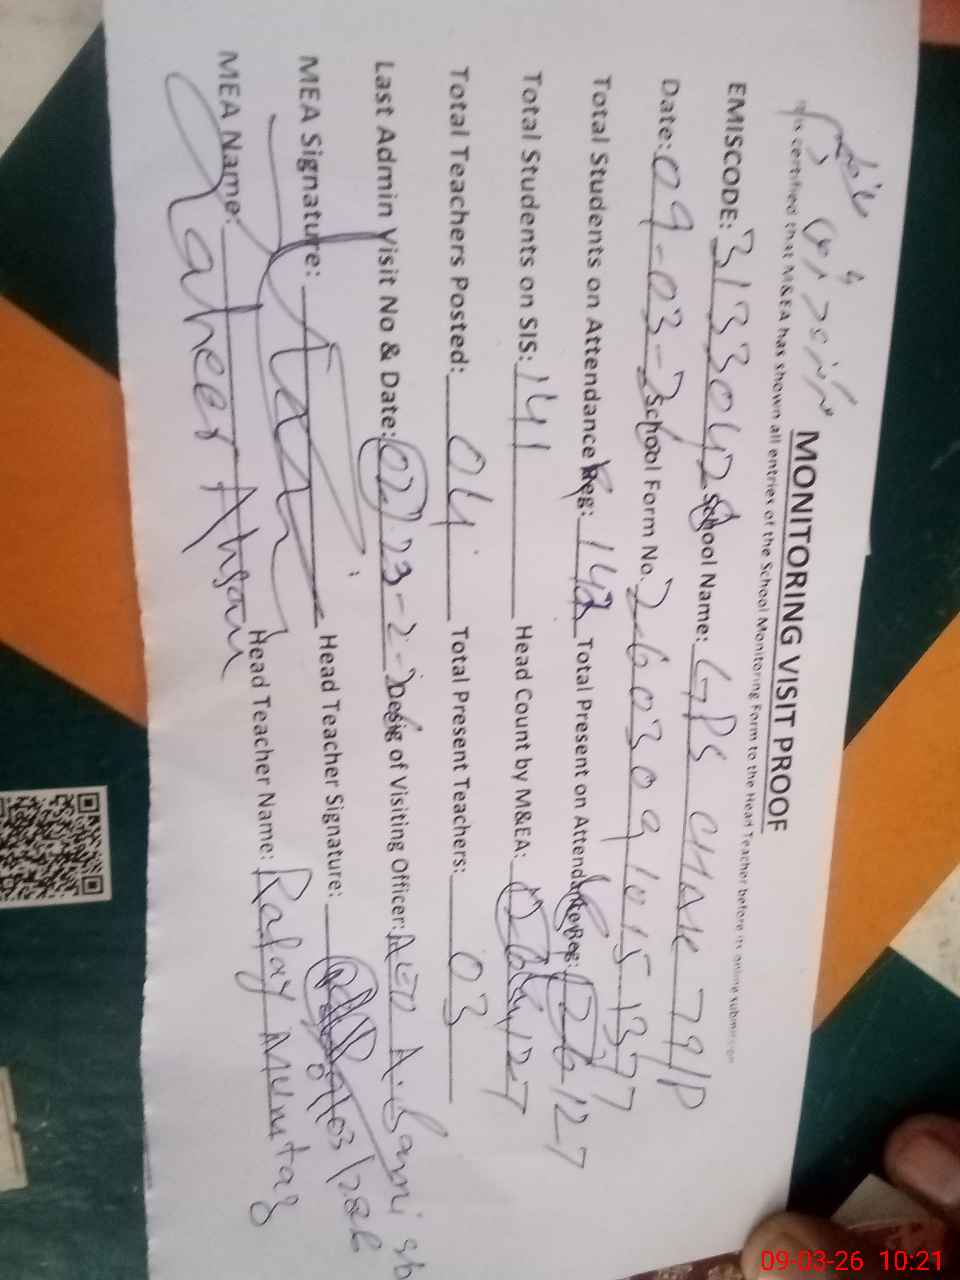 MONITORING VISIT PROOF
It is certified that M&EA has shown all entries of the School Monitoring Form to the Head Teacher before its online submission
EMISCODE: 31330428 School Name: GPS CHAK 79/P
Date: 09-03-26 School Form No. 260309 1015 1377
Total Students on Attendance Reg: 142 Total Present on Attendance Reg: 126 127
Total Students on SIS: 141 Head Count by M&EA: 127
Total Teachers Posted: 04 Total Present Teachers: 03
Last Admin Visit No & Date: 02, 23-2- Desig of Visiting Officer: AEO A. Sami sb
MEA Signature: Head Teacher Signature:
MEA Name: Zaheer Ahsan Head Teacher Name: Rafay Mumtaz
09-03-26 10:21